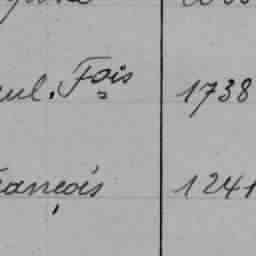 ul. Fois 1738
ançois 1241